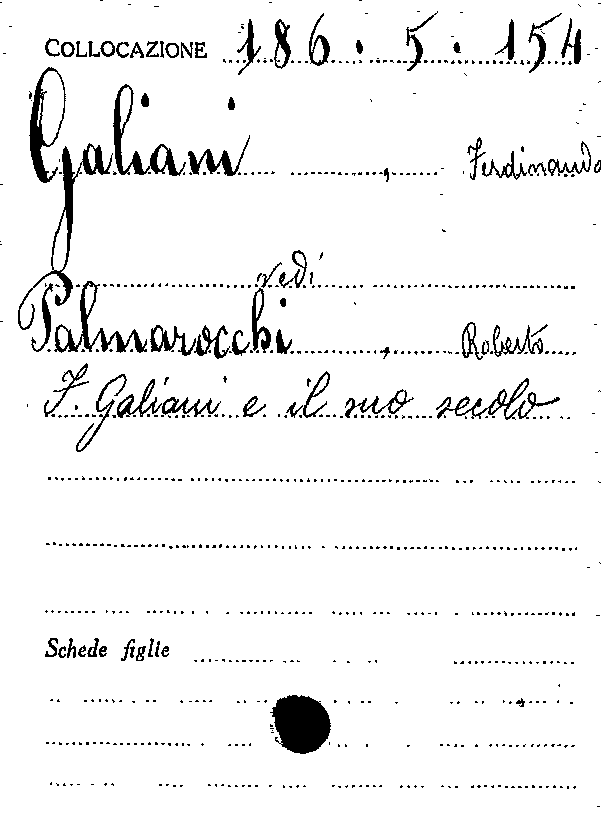 COLLOCAZIONE 186.5.154
Galiani, Ferdinando
vedi
Palmarocchi, Roberto
F. Galiani e il suo secolo
Schede figlie